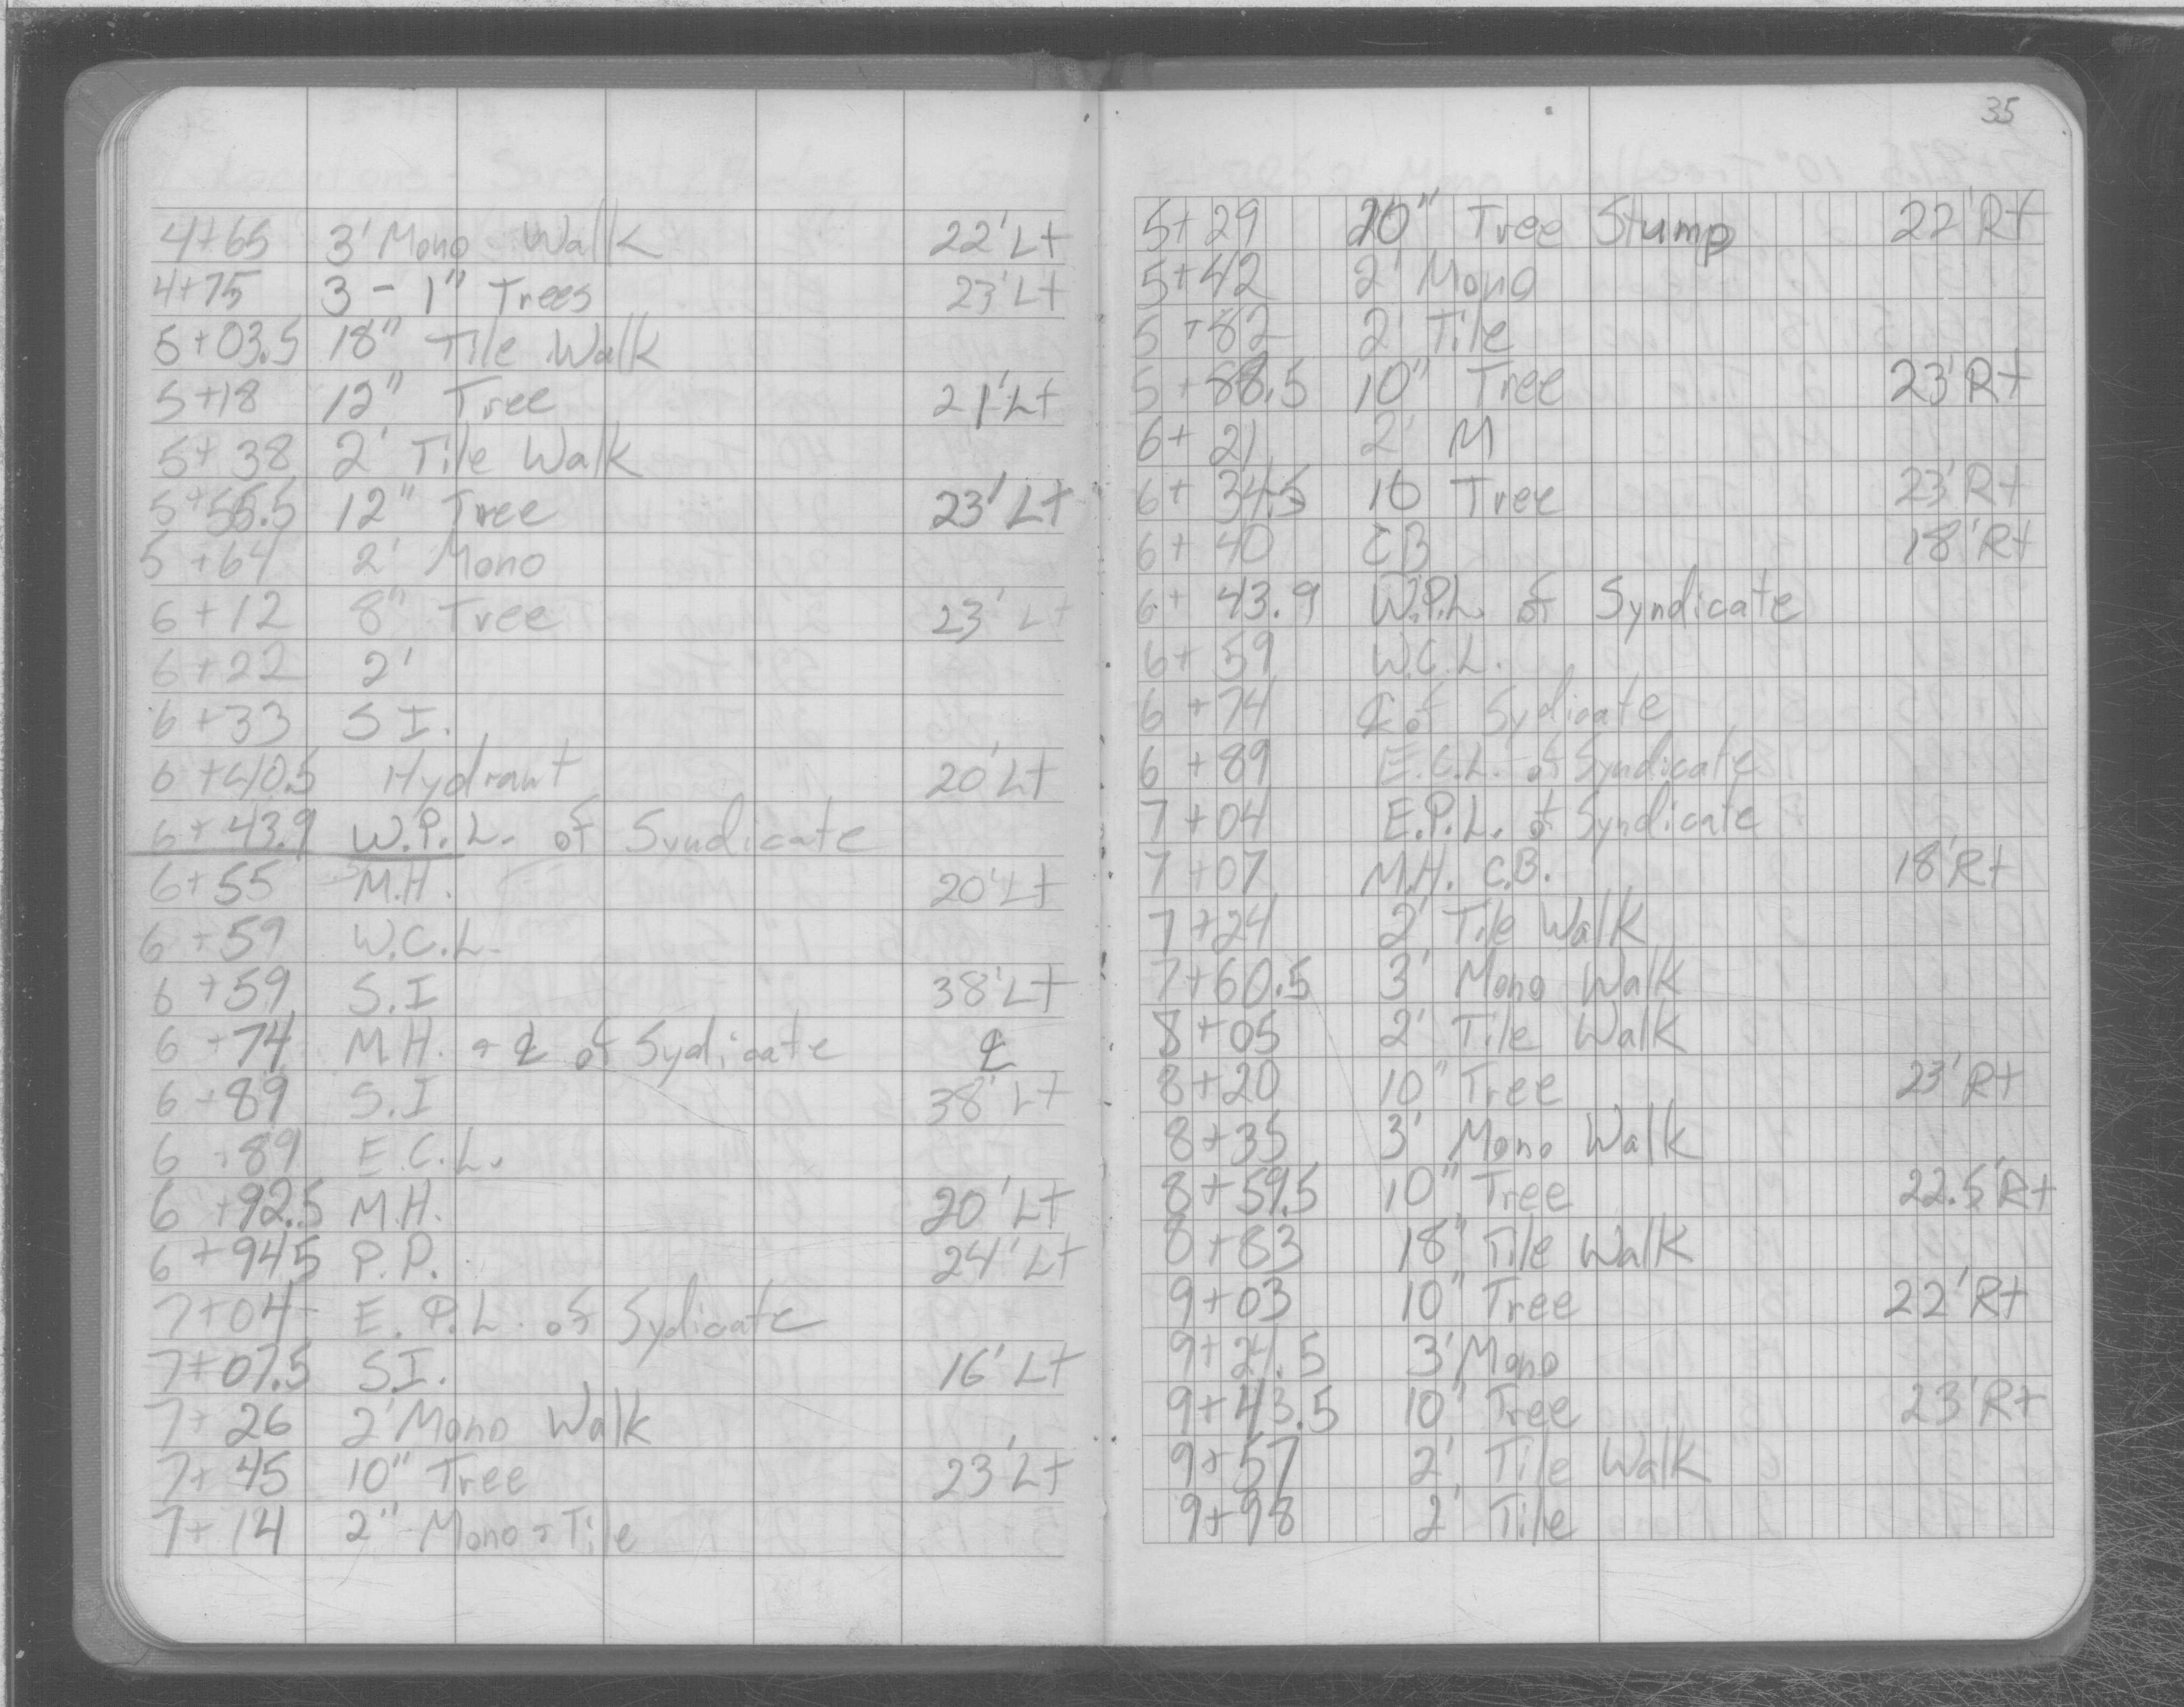 4+65 3' Mono Walk 22' Lt
4+75 3 - 1" Trees 23' Lt
5+03.5 18" Tile Walk
5+18 12" Tree 21' Lt
5+38 2' Tile Walk
5+56.5 12" Tree 23' Lt
5+64 2' Mono
6+12 8" Tree 23' Lt
6+22 2'
6+33 S I.
6+40.5 Hydrant 20' Lt
6+43.9 W.P.L. of Syndicate
6+55 M.H. 20' Lt
6+59 W.C.L.
6+59 S.I 38' Lt
6+74 M.H. + ℄ of Sydicate ℄
6+89 S.I 38' Lt
6+89 E.C.L.
6+92.5 M.H. 20' Lt
6+94.5 P.P. 24' Lt
7+04 E.P.L. of Sydicate
7+07.5 S.I. 16' Lt
7+26 2' Mono Walk
7+45 10" Tree 23' Lt
7+14 2" Mono + Tile
35
5+29 20" Tree Stump 22' Rt
5+42 2' Mono
5+82 2' Tile
5+88.5 10" Tree 23' Rt
6+21 2' M
6+34.5 10 Tree 23' Rt
6+40 CB 18' Rt
6+43.9 W.P.L. of Syndicate
6+59 W.C.L.
6+74 ℄ of Sydicate
6+89 E.C.L. of Syndicate
7+04 E.P.L. of Syndicate
7+07 M.H. C.B. 18' Rt
7+24 2' Tile Walk
7+60.5 3' Mono Walk
8+05 2' Tile Walk
8+20 10" Tree 23' Rt
8+35 3' Mono Walk
8+59.5 10" Tree 22.5' Rt
8+83 18" Tile Walk
9+03 10" Tree 22' Rt
9+21.5 3' Mono
9+43.5 10" Tree 23' Rt
9+57 2' Tile Walk
9+98 2' Tile